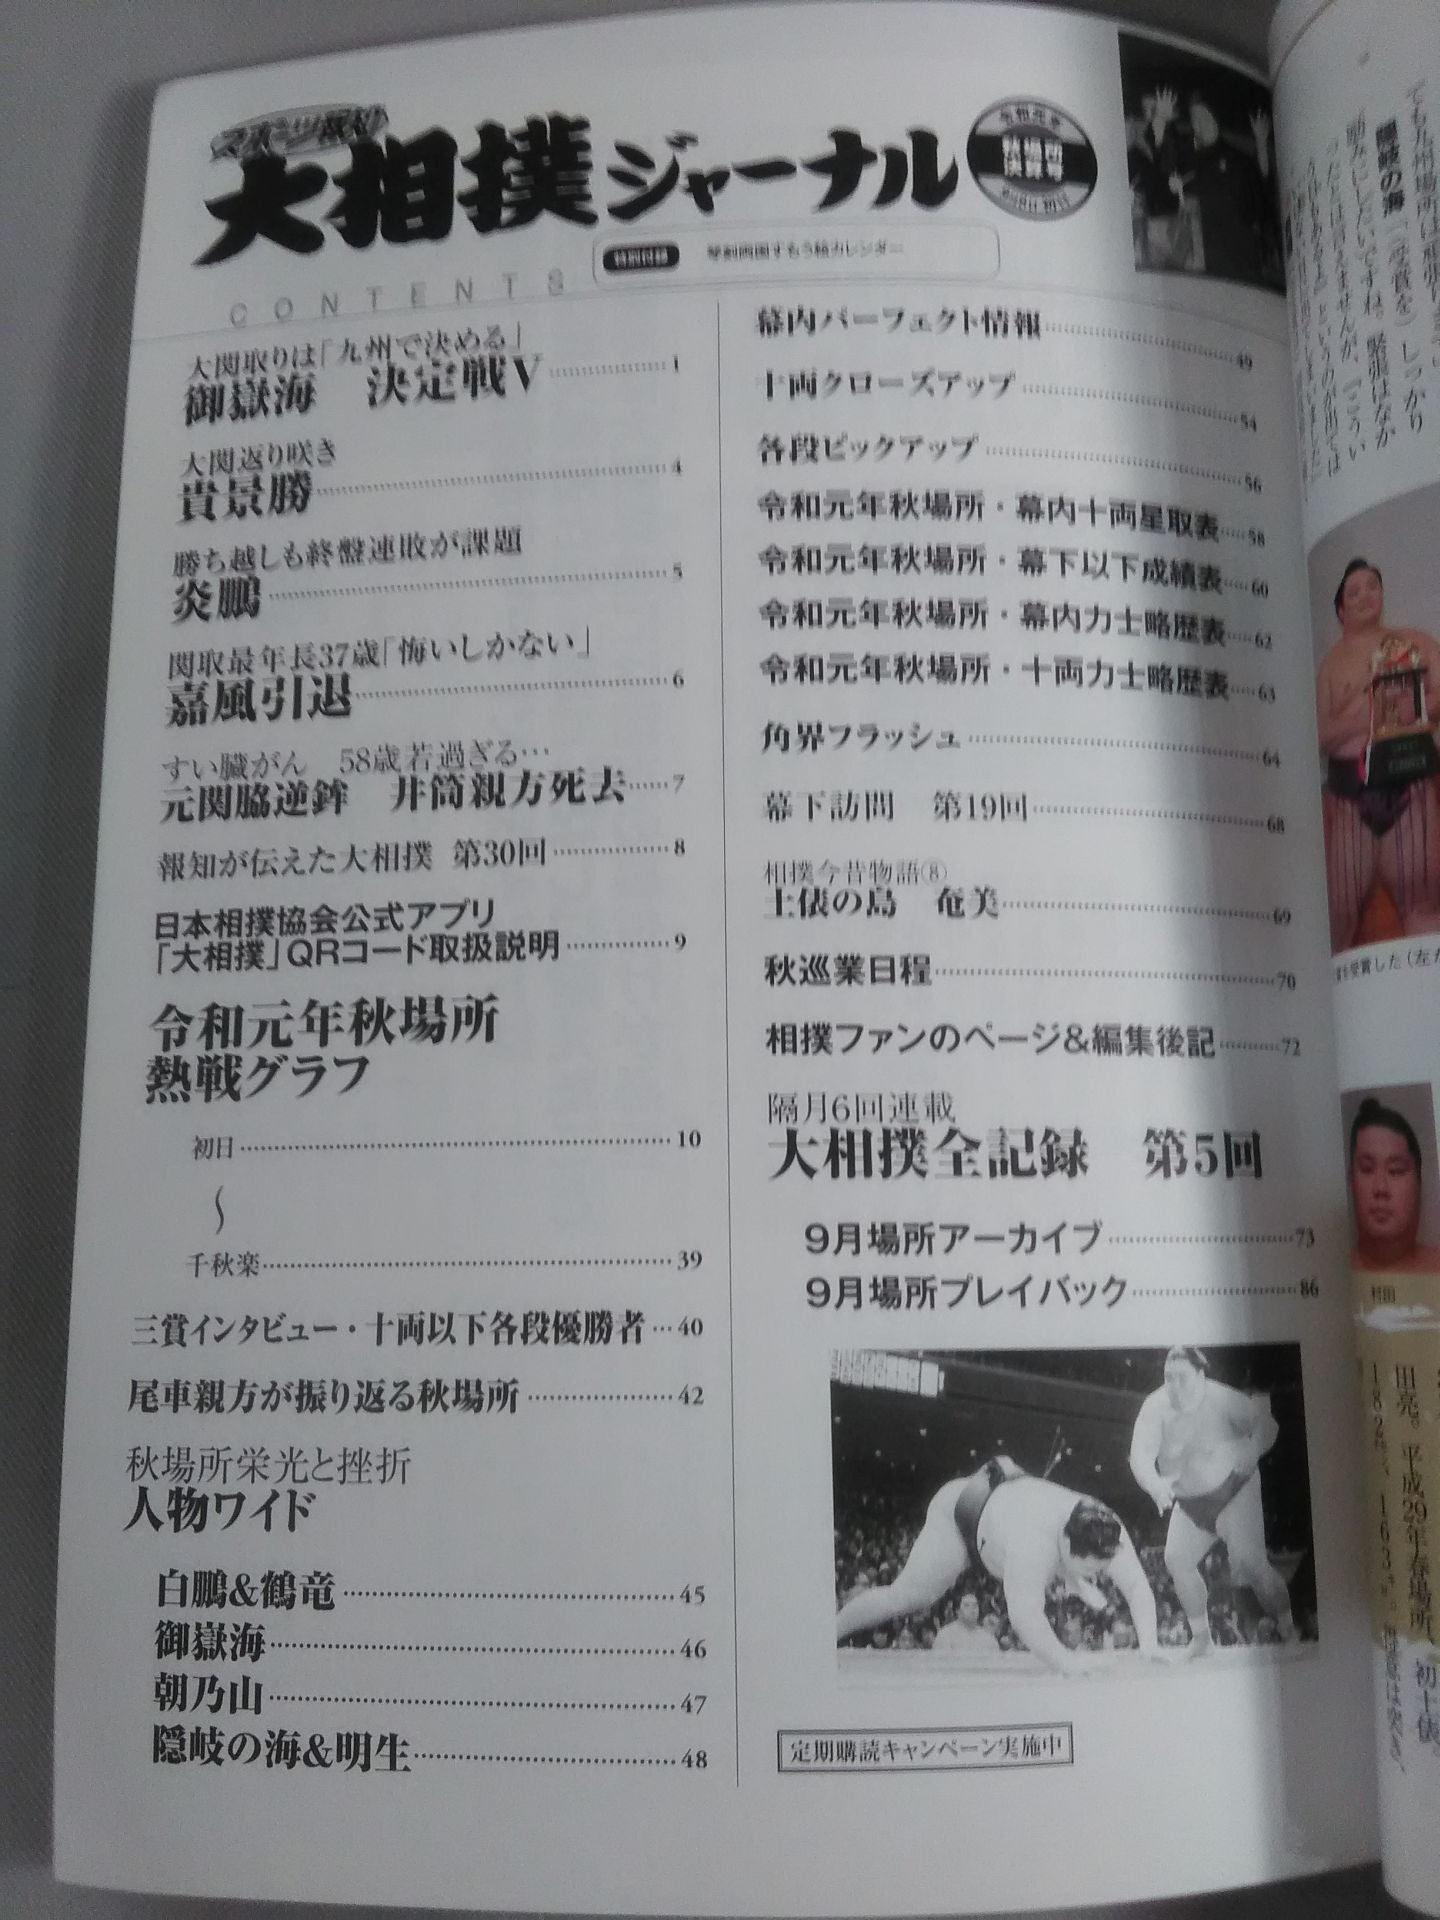 スポーツ報知
大相撲ジャーナル
令和元年
秋場所
決算号
特別付録 琴剣両国すもう絵カレンダー
CONTENTS
大関取りは「九州で決める」
御嶽海 決定戦V 1
大関返り咲き
貴景勝 4
勝ち越しも終盤連敗が課題
炎鵬 5
関取最年長37歳「悔いしかない」
嘉風引退 6
すい臓がん 58歳若過ぎる…
元関脇逆鉾 井筒親方死去 7
報知が伝えた大相撲 第30回 8
日本相撲協会公式アプリ
「大相撲」QRコード取扱説明 9
令和元年秋場所
熱戦グラフ
初日 10
〜
千秋楽 39
三賞インタビュー・十両以下各段優勝者 40
尾車親方が振り返る秋場所 42
秋場所栄光と挫折
人物ワイド
白鵬&鶴竜 45
御嶽海 46
朝乃山 47
隠岐の海&明生 48
幕内パーフェクト情報 49
十両クローズアップ 54
各段ピックアップ 56
令和元年秋場所・幕内十両星取表 58
令和元年秋場所・幕下以下成績表 60
令和元年秋場所・幕内力士略歴表 62
令和元年秋場所・十両力士略歴表 63
角界フラッシュ 64
幕下訪問 第19回 68
相撲今昔物語⑧
土俵の島 奄美 69
秋巡業日程 70
相撲ファンのページ&編集後記 72
隔月6回連載
大相撲全記録 第5回
9月場所アーカイブ 73
9月場所プレイバック 86
定期購読キャンペーン実施中
隠岐の海
を受賞した(左か
村田
田亮。平成29年春場所、初土俵。